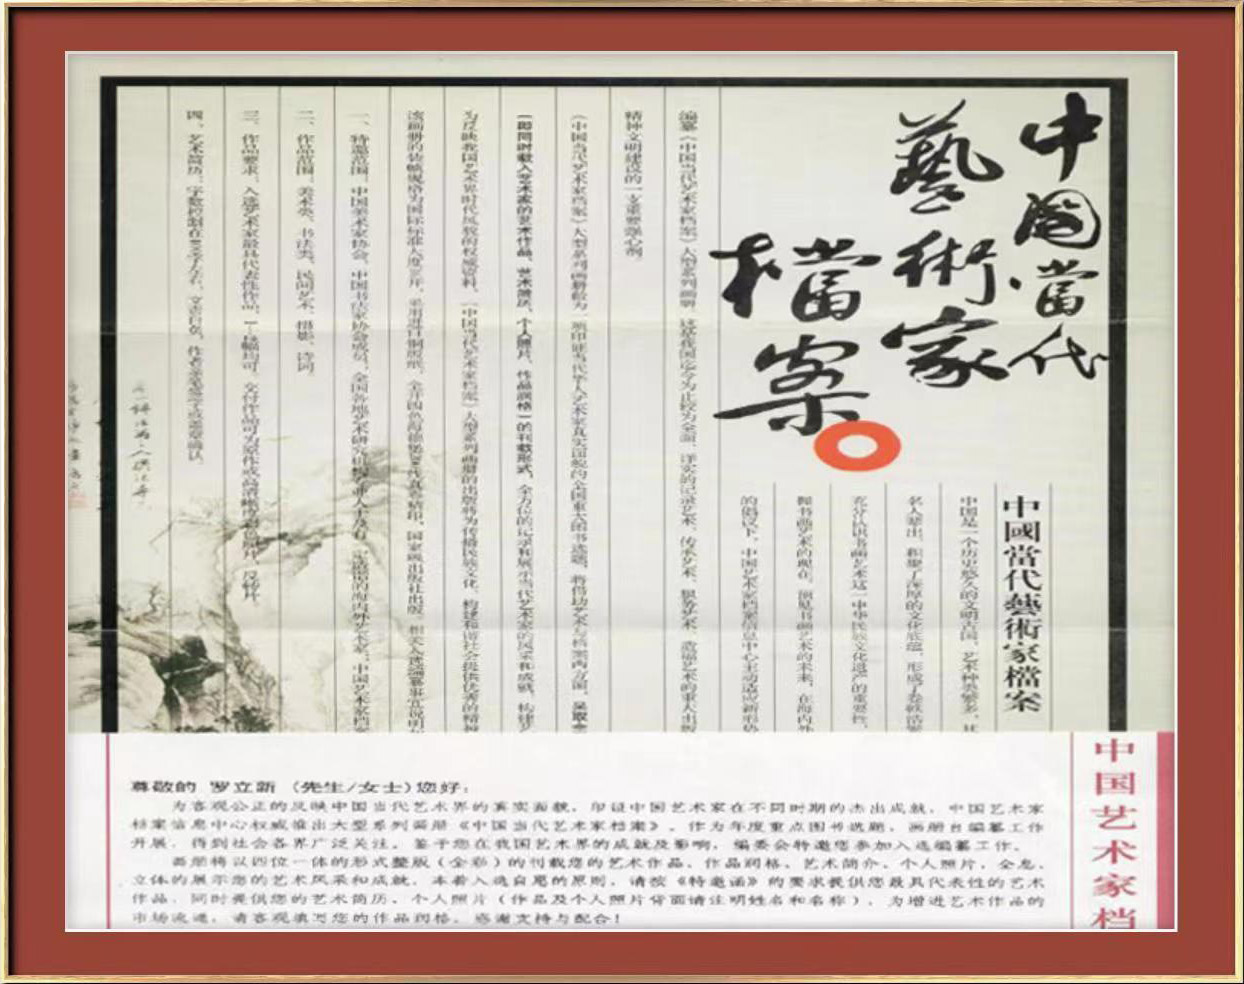 中国當代
藝術家
檔案
中國當代藝術家檔案
中国是一个历史悠久的文明古国，艺术种类繁多，
名人辈出，积聚了深厚的文化底蕴，形成了
充分认识书画艺术这一中华民族文化遗产的重要性，
握书画艺术的现在，预见书画艺术的未来，在海内外
的倡议下，中国艺术家档案信息中心主动适应新形势
编纂《中国当代艺术家档案》大型系列画册，这是我国迄今为止较为全面、详实的记录艺术、传承艺术、服务艺术、造福艺术的重大出版
精神文明建设的一支重要强心剂。
《中国当代艺术家档案》大型系列画册做为一项印证当代华人艺术家真实面貌的全国重点图书选题，将借助艺术与档案两方面，
（即同时载入艺术家的艺术作品、艺术简历、个人照片、作品润格）的刊载形式，全方位的记录和展示当代艺术家的风采和成就，构建
为反映我国艺术界时代风貌的权威资料。《中国当代艺术家档案》大型系列画册的出版将为传播民族文化、构建和谐社会提供优秀的精神
该画册的装帧规格为国际标准大度8开，采用进口铜版纸，全开四色海德堡 精印，国家级出版社出版，相关入选编纂事宜说明
一、特邀范围：中国美术家协会、中国书法家协会成员，全国各地艺术研究机构 人士及有一定造诣的海内外艺术家；中国艺术家档案
二、作品范围：美术类、书法类、民间艺术、摄影、诗词。
三、作品要求：入选艺术家最具代表性作品，1— 幅均可，交付作品可为原作或高清晰度彩色照片、反转片。
四、艺术简历：字数控制在 字左右，文责自负，作者亲笔签字或盖章确认。
中国艺术家档
尊敬的 罗立新 (先生/女士)您好：
为客观公正的反映中国当代艺术界的真实面貌，印证中国艺术家在不同时期的杰出成就，中国艺术家
档案信息中心权威推出大型系列画册《中国当代艺术家档案》。作为年度重点图书选题，画册自编纂工作
开展，得到社会各界广泛关注。鉴于您在我国艺术界的成就及影响，编委会特邀您参加入选编纂工作。
画册将以四位一体的形式整版（全彩）的刊载您的艺术作品、作品润格、艺术简介、个人照片，全息、
立体的展示您的艺术风采和成就。本着入选自愿的原则，请按《特邀函》的要求提供您最具代表性的艺术
作品，同时提供您的艺术简历、个人照片（作品及个人照片背面请注明姓名和名称），为增进艺术作品的
市场流通，请客观填写您的作品润格。感谢支持与配合！